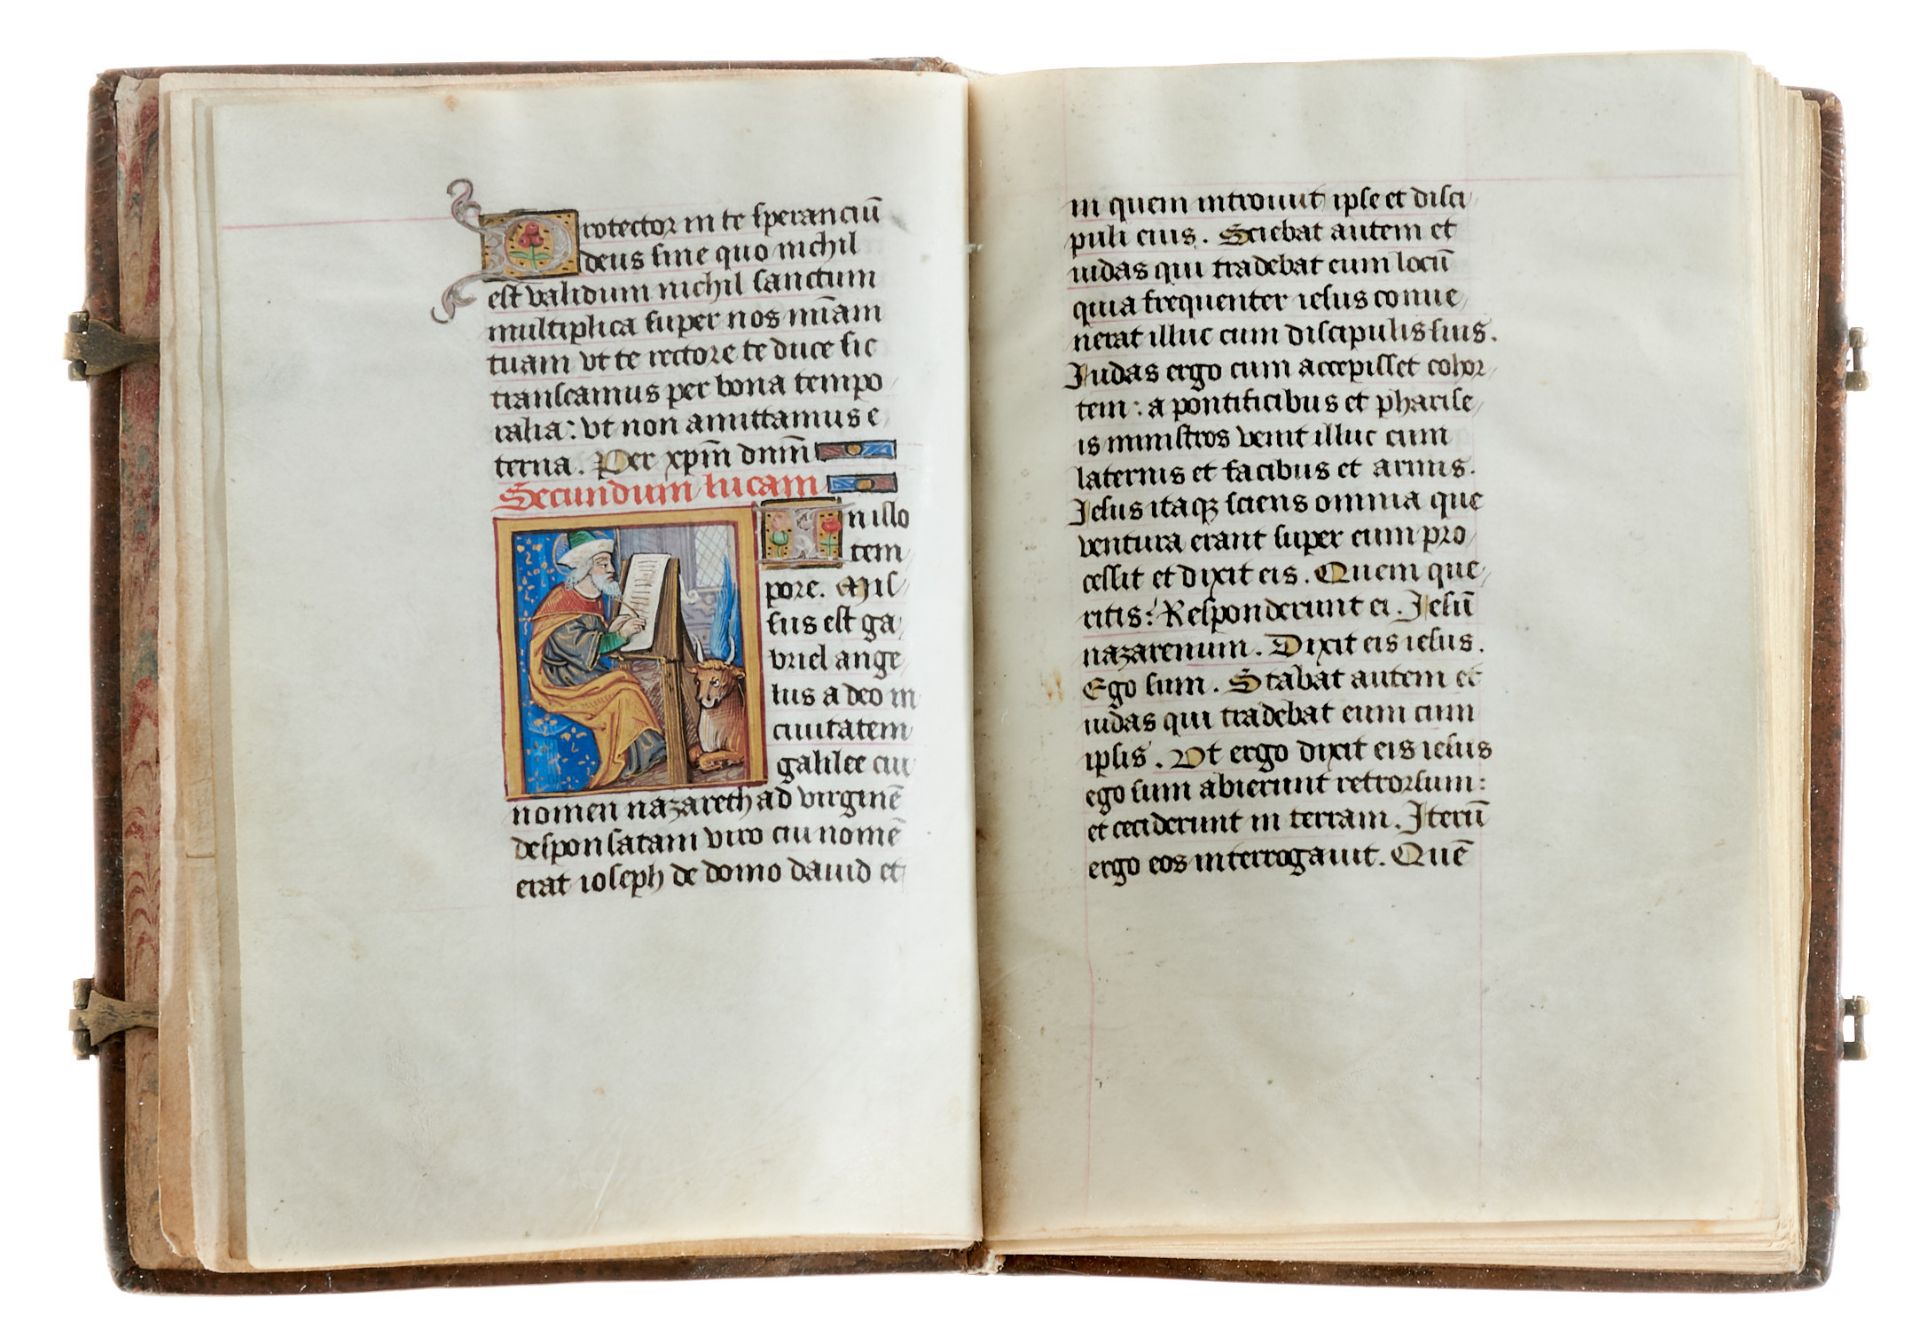 Protector in te speranciū
deus sine quo nichil
est validum nichil sanctum
multiplica super nos mīam
tuam vt te rectore te duce sic
transeamus per bona tempo
ralia: vt non amittamus e
terna. Per xp̄m dn̄m
Secundum lucam
In illo
tem
pore. Mis
sus est ga
briel ange
lus a deo in
ciuitatem
galilee cui
nomen nazareth ad virginē
desponsatam viro cui nomē
erat ioseph de domo dauid et
in quem introiuit ipse et disci
puli eius. Sciebat autem et
iudas qui tradebat eum locū
quia frequenter iesus conue
nerat illuc cum discipulis suis.
Judas ergo cum accepisset cohor
tem: a pontificibus et pharise
is ministros venit illuc cum
laternis et facibus et armis.
Jesus itaqꝫ sciens omnia que
ventura erant super eum pro
cessit et dixit eis. Quem que
ritis: Responderunt ei. Jesū
nazarenum. Dixit eis iesus.
Ego sum. Stabat autem et
iudas qui tradebat eum cum
ipsis. Vt ergo dixit eis iesus
ego sum abierunt retrorsum:
et ceciderunt in terram. Jterū
ergo eos interrogauit. Quē